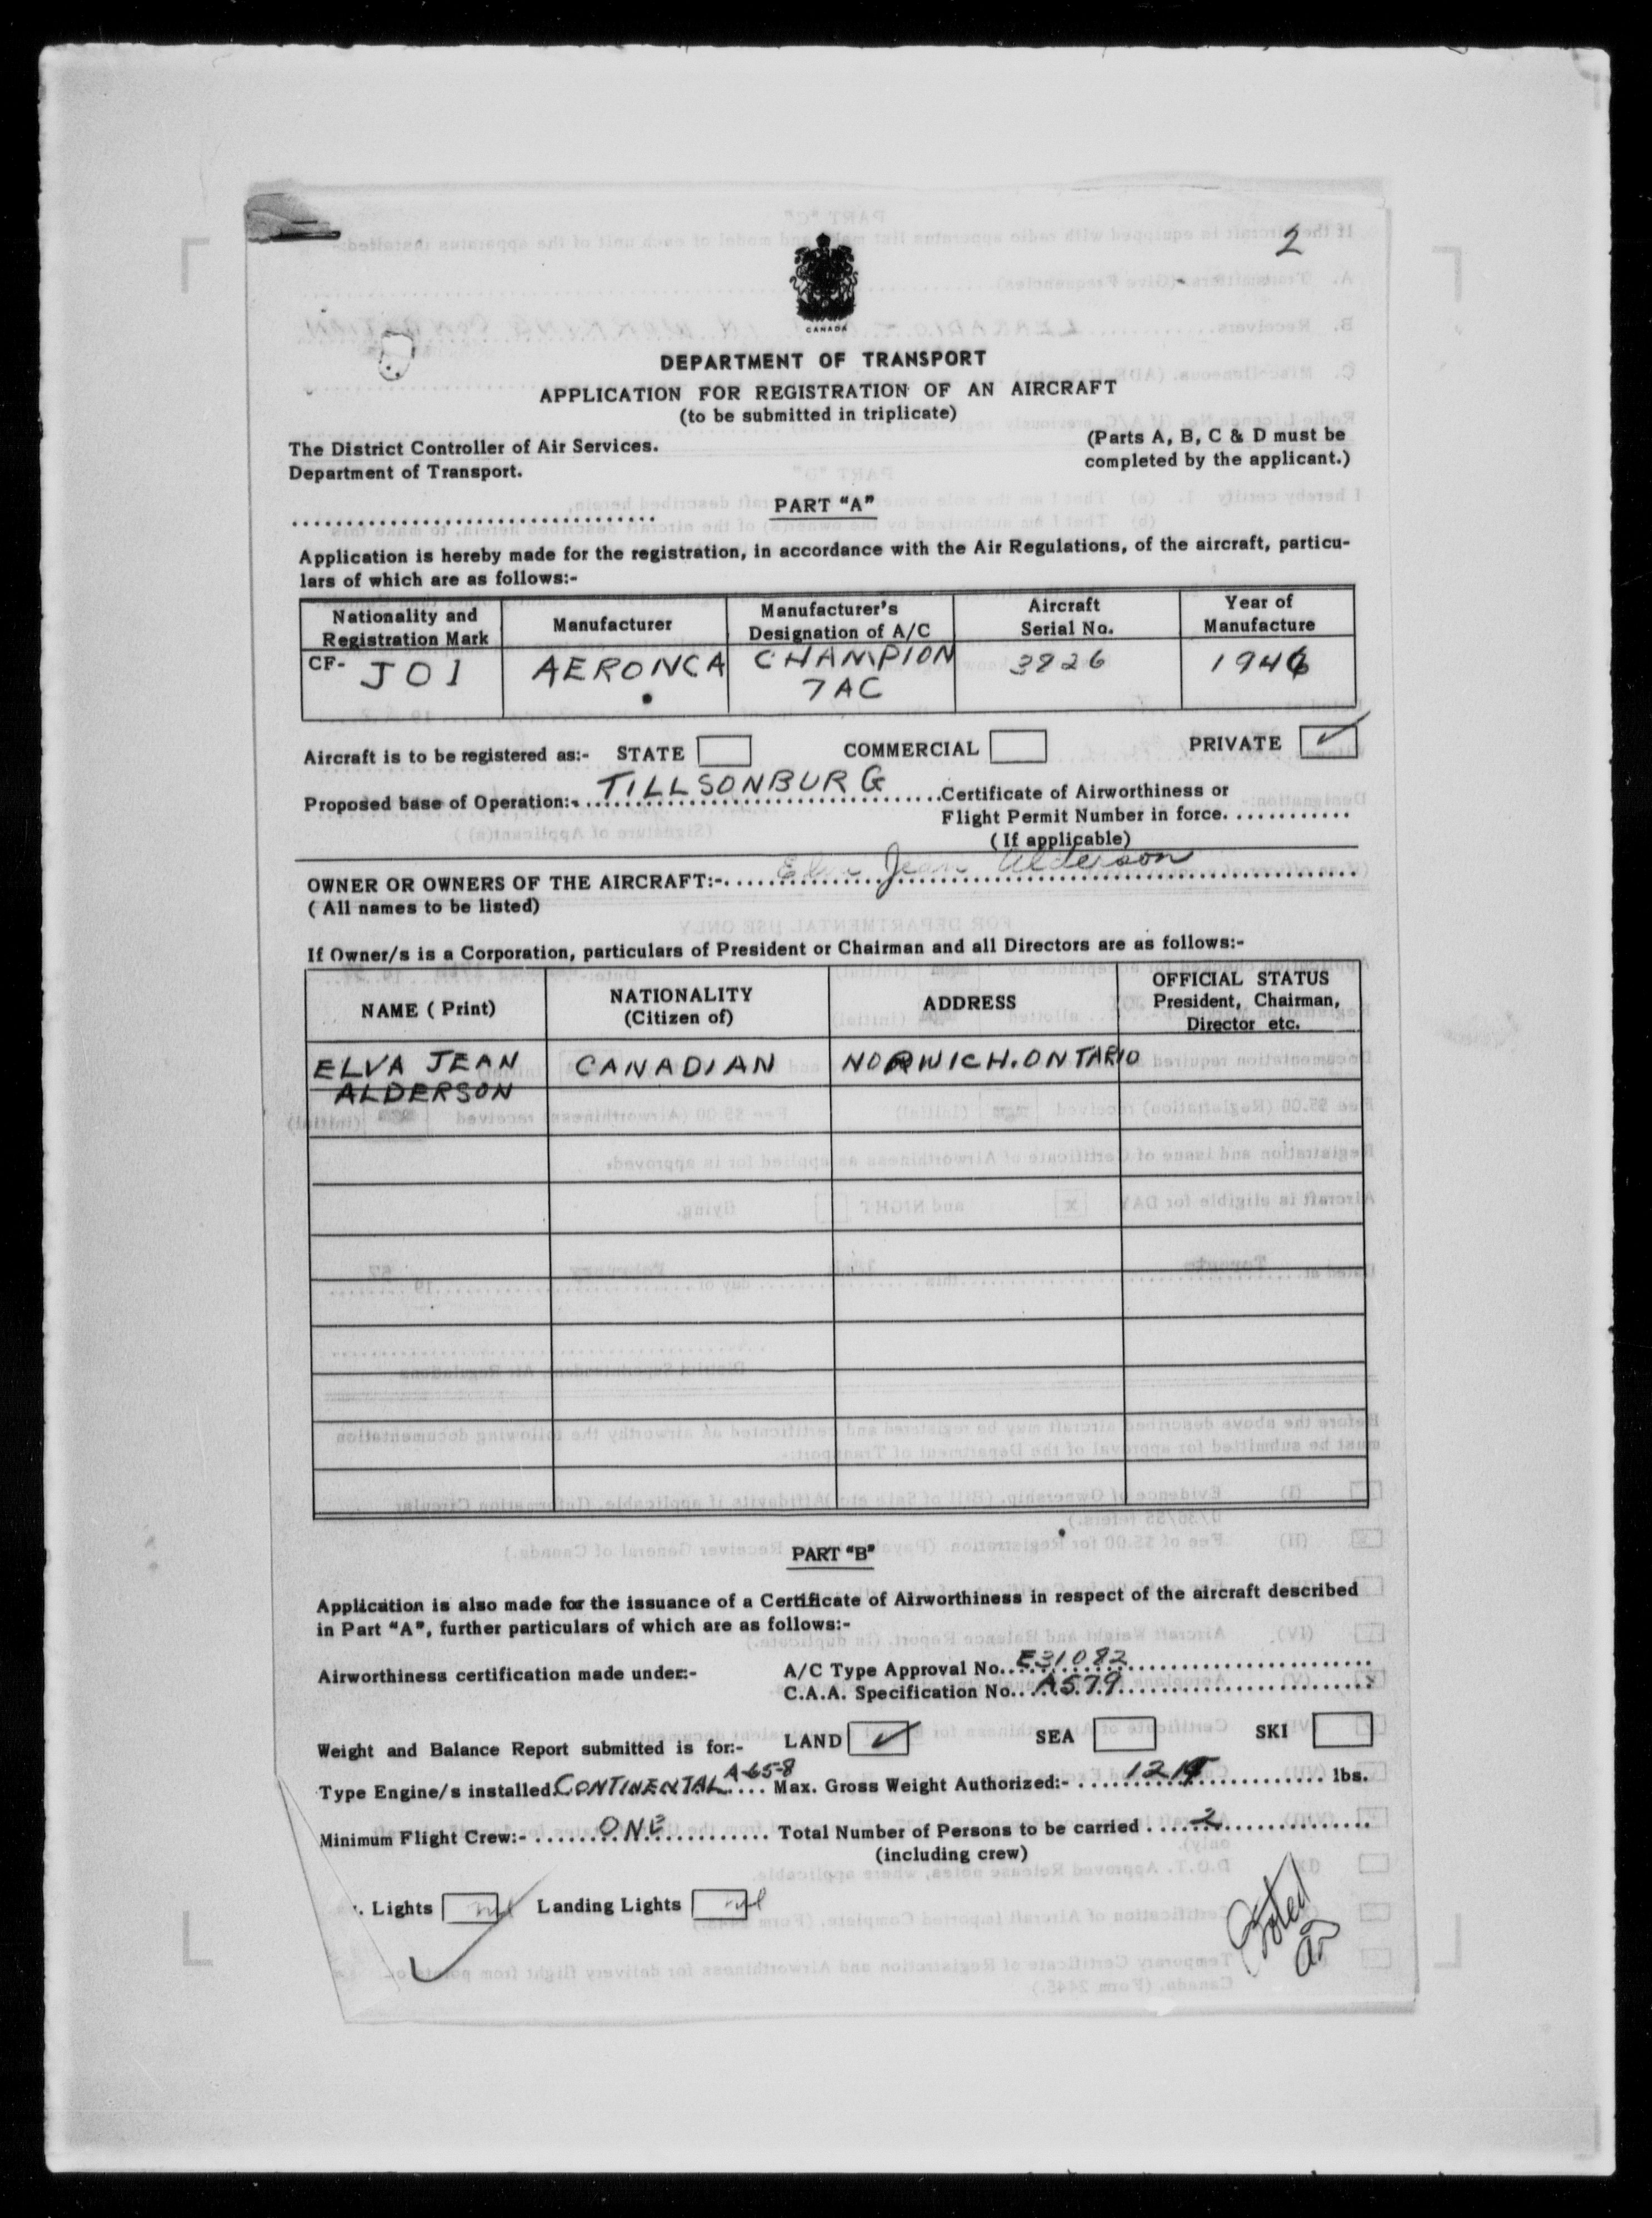 2
CANADA
DEPARTMENT OF TRANSPORT
APPLICATION FOR REGISTRATION OF AN AIRCRAFT
(to be submitted in triplicate)
The District Controller of Air Services.
Department of Transport.
(Parts A, B, C & D must be
completed by the applicant.)
PART "A"
Application is hereby made for the registration, in accordance with the Air Regulations, of the aircraft, particu-
lars of which are as follows:-
Nationality and Registration Mark Manufacturer Manufacturer's Designation of A/C Aircraft Serial No. Year of Manufacture
CF- JOI AERONCA CHAMPION 3826 1946
7AC
Aircraft is to be registered as:- STATE COMMERCIAL PRIVATE ✓
Proposed base of Operation:- TILLSONBURG Certificate of Airworthiness or
Flight Permit Number in force.
(If applicable)
OWNER OR OWNERS OF THE AIRCRAFT:- Elva Jean Alderson
(All names to be listed)
If Owner/s is a Corporation, particulars of President or Chairman and all Directors are as follows:-
NAME (Print) NATIONALITY (Citizen of) ADDRESS OFFICIAL STATUS President, Chairman, Director etc.
ELVA JEAN CANADIAN NORWICH. ONTARIO
ALDERSON
PART "B"
Application is also made for the issuance of a Certificate of Airworthiness in respect of the aircraft described
in Part "A", further particulars of which are as follows:-
Airworthiness certification made under:- A/C Type Approval No. E31082
C.A.A. Specification No. A579
Weight and Balance Report submitted is for:- LAND ✓ SEA SKI
Type Engine/s installed CONTINENTAL A-65-8 Max. Gross Weight Authorized:- lbs.
Minimum Flight Crew:- ONE Total Number of Persons to be carried 2
(including crew)
Lights nil Landing Lights nil